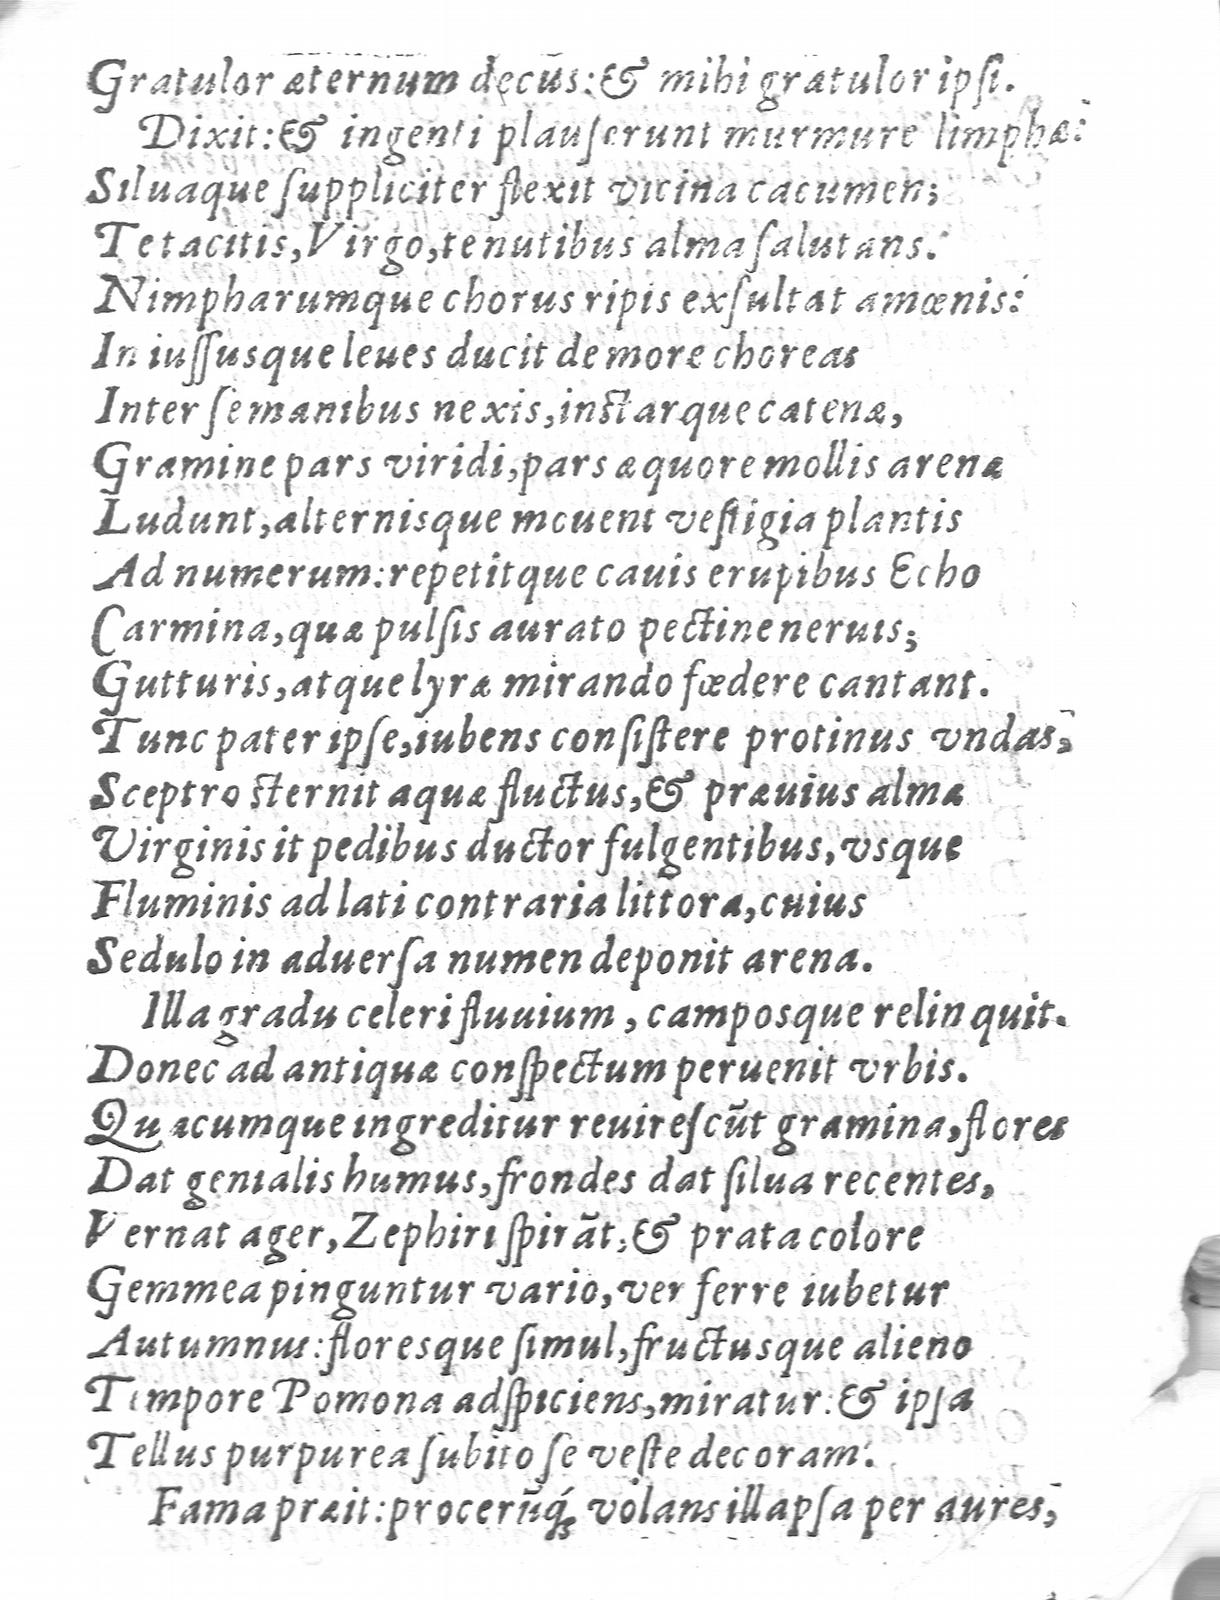 Gratulor æternum decus:& mihi gratulor ipſi.
Dixit:& ingenti plauſerunt murmure limphæ:
Siluaque ſuppliciter flexit vicina cacumen;
Te tacitis, Virgo, te nutibus alma ſalutans.
Nimpharumque chorus ripis exſultat amœnis:
In iuſſusque leues ducit de more choreas
Inter ſe manibus nexis, instarque catenæ,
Gramine pars viridi, pars æquore mollis arenæ
Ludunt, alternisque mouent veſtigia plantis
Ad numerum: repetitque cauis e rupibus Echo
Carmina, quæ pulſis aurato pectine neruis;
Gutturis, atque lyræ mirando fœdere cantant.
Tunc pater ipſe, iubens conſiſtere protinus vndas,
Sceptro sternit aquæ fluctus, & præuius almæ
Virginis it pedibus ductor fulgentibus, vsque
Fluminis ad lati contraria littora, cuius
Sedulo in aduerſa numen deponit arena.
Illa gradu celeri fluuium, camposque relinquit.
Donec ad antiquæ conſpectum peruenit vrbis.
Quacumque ingreditur reuireſcũt gramina, flores
Dat genialis humus, frondes dat ſilua recentes,
Vernat ager, Zephiri ſpirãt; & prata colore
Gemmea pinguntur vario, ver ferre iubetur
Autumnus: floresque ſimul, fructusque alieno
Tempore Pomona adſpiciens, miratur: & ipſa
Tellus purpurea ſubito ſe veſte decoram.
Fama præit: procerũq́; volans illapſa per aures,